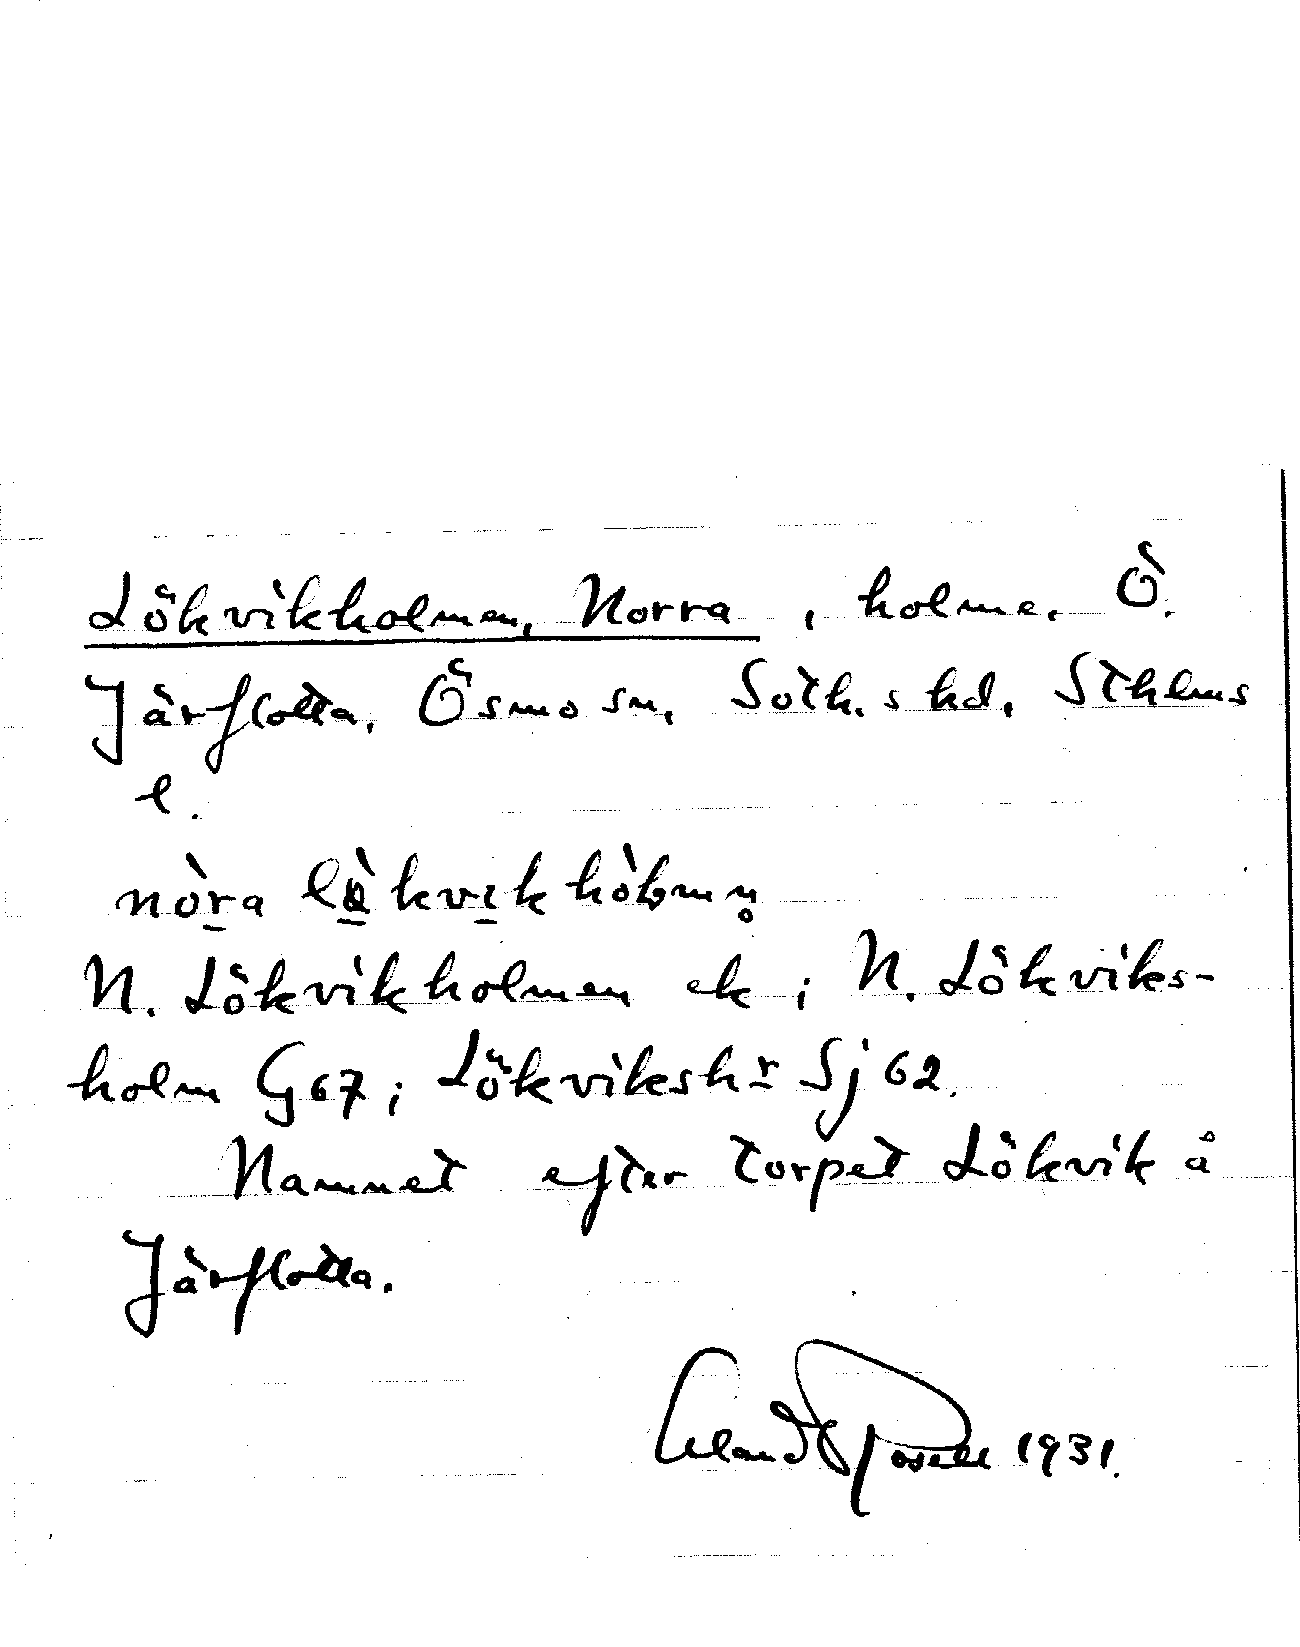 Lökvikholmen, Norra, holme. Ö.
Järflotta, Ösmo sn, Soth. s hd, Sthlms
l.
nòra
N. Lökvikholmen ek; N. Lökviks-
holm G67; Lökvikshr Sj 62.
Namnet efter torpet Lökvik å
Järflotta.
Erland Rosell 1931.